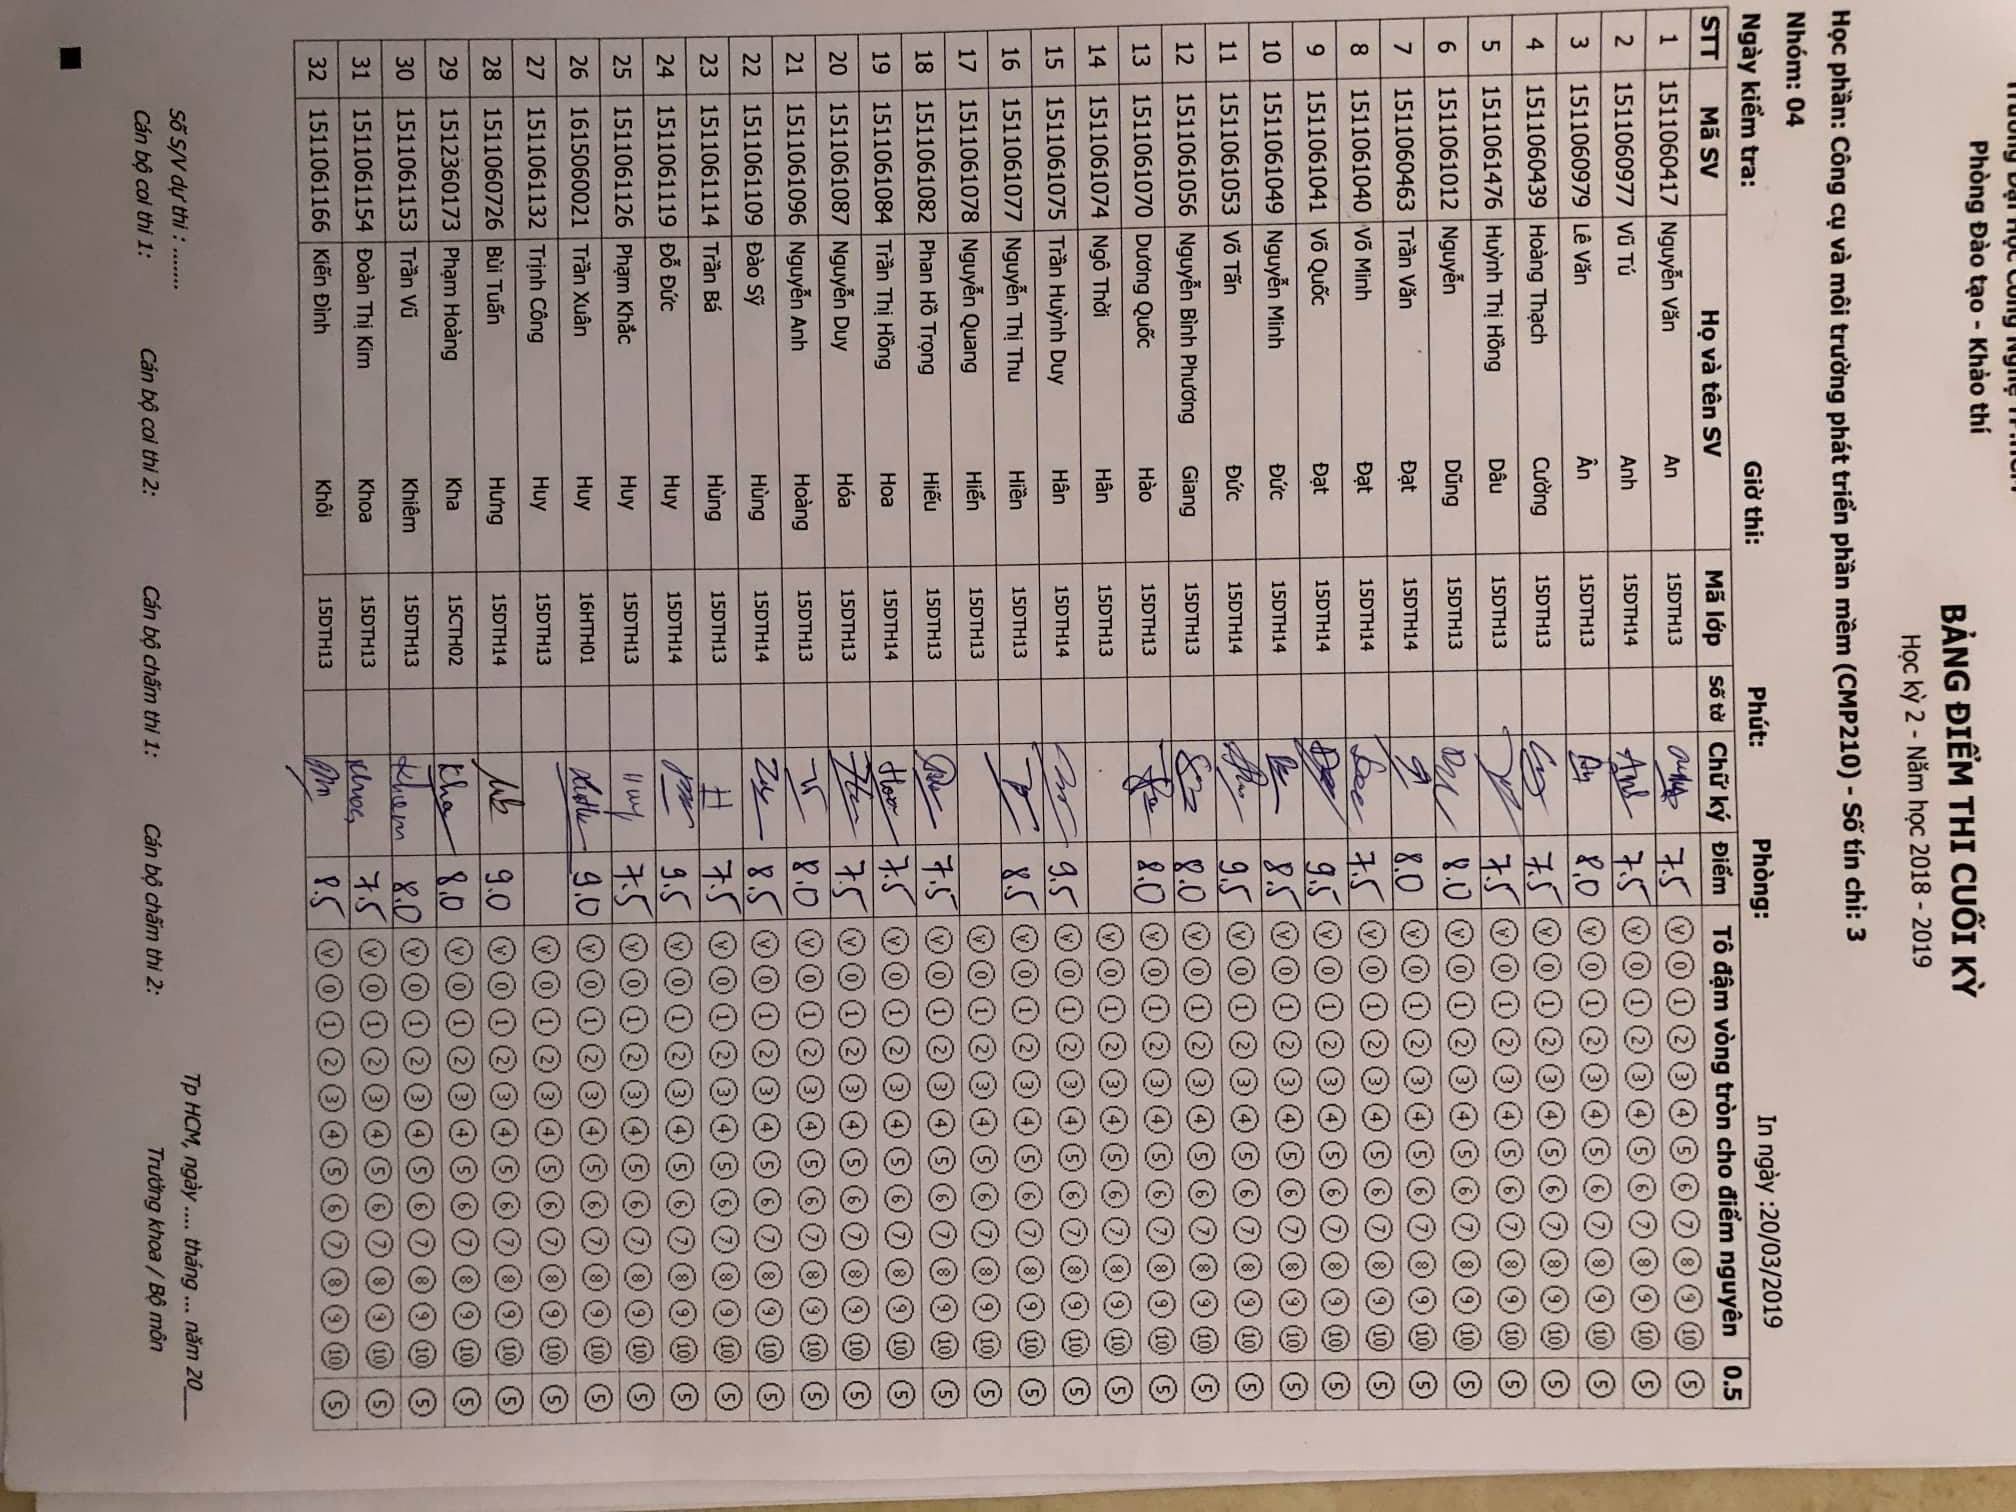 Phòng Đào tạo - Khảo thí
BẢNG ĐIỂM THI CUỐI KỲ
Học kỳ 2 - Năm học 2018 - 2019
Học phần: Công cụ và môi trường phát triển phần mềm (CMP210) - Số tín chỉ: 3
Nhóm: 04
In ngày :20/03/2019
Ngày kiểm tra: Giờ thi: Phút: Phòng:
STT Mã SV Họ và tên SV Mã lớp Số tờ Chữ ký Điểm Tô đậm vòng tròn cho điểm nguyên 0.5
1 1511060417 Nguyễn Văn An 15DTH13 7.5 V 0 1 2 3 4 5 6 7 8 9 10 5
2 1511060977 Vũ Tú Anh 15DTH14 Anh 7.5 V 0 1 2 3 4 5 6 7 8 9 10 5
3 1511060979 Lê Văn Ân 15DTH13 Ân 8.0 V 0 1 2 3 4 5 6 7 8 9 10 5
4 1511060439 Hoàng Thạch Cường 15DTH13 7.5 V 0 1 2 3 4 5 6 7 8 9 10 5
5 1511061476 Huỳnh Thị Hồng Dâu 15DTH13 7.5 V 0 1 2 3 4 5 6 7 8 9 10 5
6 1511061012 Nguyễn Dũng 15DTH13 8.0 V 0 1 2 3 4 5 6 7 8 9 10 5
7 1511060463 Trần Văn Đạt 15DTH14 8.0 V 0 1 2 3 4 5 6 7 8 9 10 5
8 1511061040 Võ Minh Đạt 15DTH14 7.5 V 0 1 2 3 4 5 6 7 8 9 10 5
9 1511061041 Võ Quốc Đạt 15DTH14 9.5 V 0 1 2 3 4 5 6 7 8 9 10 5
10 1511061049 Nguyễn Minh Đức 15DTH14 8.5 V 0 1 2 3 4 5 6 7 8 9 10 5
11 1511061053 Võ Tấn Đức 15DTH14 9.5 V 0 1 2 3 4 5 6 7 8 9 10 5
12 1511061056 Nguyễn Bình Phương Giang 15DTH13 8.0 V 0 1 2 3 4 5 6 7 8 9 10 5
13 1511061070 Dương Quốc Hào 15DTH13 8.0 V 0 1 2 3 4 5 6 7 8 9 10 5
14 1511061074 Ngô Thời Hân 15DTH13 V 0 1 2 3 4 5 6 7 8 9 10 5
15 1511061075 Trần Huỳnh Duy Hân 15DTH14 9.5 V 0 1 2 3 4 5 6 7 8 9 10 5
16 1511061077 Nguyễn Thị Thu Hiền 15DTH13 8.5 V 0 1 2 3 4 5 6 7 8 9 10 5
17 1511061078 Nguyễn Quang Hiển 15DTH13 V 0 1 2 3 4 5 6 7 8 9 10 5
18 1511061082 Phan Hồ Trọng Hiếu 15DTH13 7.5 V 0 1 2 3 4 5 6 7 8 9 10 5
19 1511061084 Trần Thị Hồng Hoa 15DTH14 Hoa 7.5 V 0 1 2 3 4 5 6 7 8 9 10 5
20 1511061087 Nguyễn Duy Hóa 15DTH13 7.5 V 0 1 2 3 4 5 6 7 8 9 10 5
21 1511061096 Nguyễn Anh Hoàng 15DTH13 8.0 V 0 1 2 3 4 5 6 7 8 9 10 5
22 1511061109 Đào Sỹ Hùng 15DTH14 8.5 V 0 1 2 3 4 5 6 7 8 9 10 5
23 1511061114 Trần Bá Hùng 15DTH13 H 7.5 V 0 1 2 3 4 5 6 7 8 9 10 5
24 1511061119 Đỗ Đức Huy 15DTH14 9.5 V 0 1 2 3 4 5 6 7 8 9 10 5
25 1511061126 Phạm Khắc Huy 15DTH13 Huy 7.5 V 0 1 2 3 4 5 6 7 8 9 10 5
26 1615060021 Trần Xuân Huy 16HTH01 9.0 V 0 1 2 3 4 5 6 7 8 9 10 5
27 1511061132 Trịnh Công Huy 15DTH13 V 0 1 2 3 4 5 6 7 8 9 10 5
28 1511060726 Bùi Tuấn Hưng 15DTH14 9.0 V 0 1 2 3 4 5 6 7 8 9 10 5
29 1512360173 Phạm Hoàng Kha 15CTH02 Kha 8.0 V 0 1 2 3 4 5 6 7 8 9 10 5
30 1511061153 Trần Vũ Khiêm 15DTH13 Khiem 8.0 V 0 1 2 3 4 5 6 7 8 9 10 5
31 1511061154 Đoàn Thị Kim Khoa 15DTH13 Khoa 7.5 V 0 1 2 3 4 5 6 7 8 9 10 5
32 1511061166 Kiến Đình Khôi 15DTH13 8.5 V 0 1 2 3 4 5 6 7 8 9 10 5
Tp HCM, ngày .... tháng ... năm 20___
Số S/V dự thi : .......
Cán bộ coi thi 1: Cán bộ coi thi 2: Cán bộ chấm thi 1: Cán bộ chấm thi 2: Trưởng khoa / Bộ môn